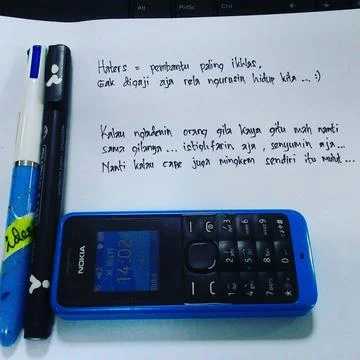 Haters = pembantu paling ikhlas,
Gak digaji aja rela ngurusin hidup kita... :)
Kalau ngadenin orang gila kaya gitu mah nanti
sama gilanya... istighfarin aja, senyumin aja...
Nanti kalau cape juga mingkem sendiri itu mulut...
ides
NOKIA
14:02